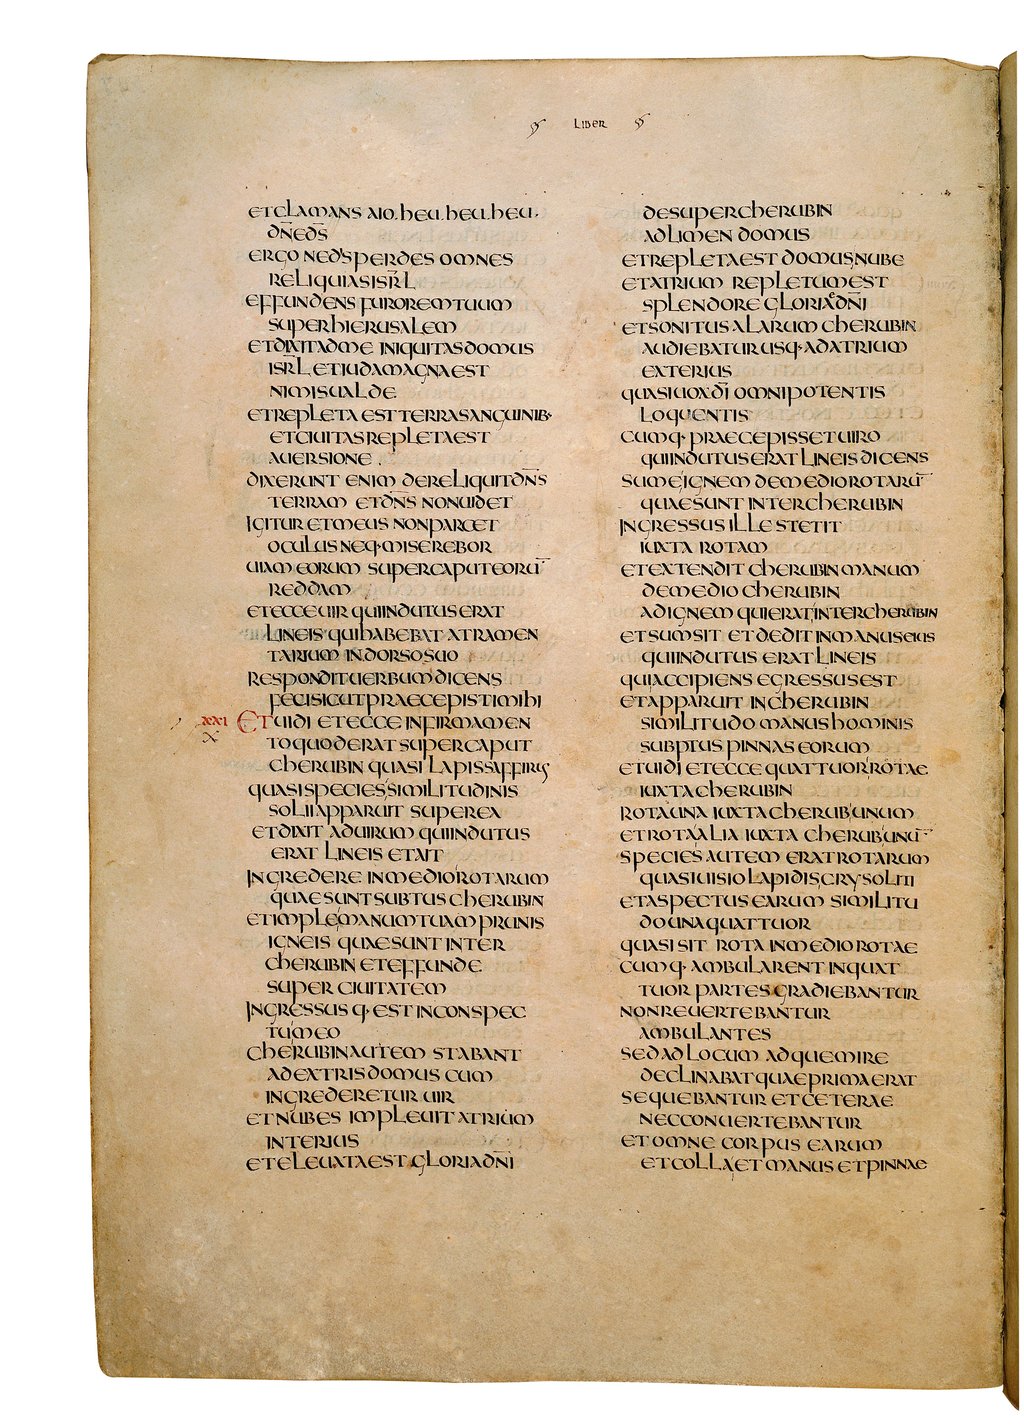 LIBER
ET CLAMANS AIO. HEU. HEU. HEU.
DN̄E DS
ERGO NE DS PERDES OMNES
RELIQUIAS ISR̄L
EFFUNDENS FUROREM TUUM
SUPER HIERUSALEM
ET DIXIT AD ME INIQUITAS DOMUS
ISR̄L ET IUDA MAGNA EST
NIMIS UALDE
ET REPLETA EST TERRA SANGUINIB·
ET CIUITAS REPLETA EST
AUERSIONE.
DIXERUNT ENIM DERELIQUIT DN̄S
TERRAM ET DN̄S NON UIDET
IGITUR ET MEUS NON PARCET
OCULUS NEQ· MISEREBOR
UIAM EORUM SUPER CAPUT EORŪ
REDDAM
ET ECCE UIR QUI INDUTUS ERAT
LINEIS QUI HABEBAT ATRAMEN
TARIUM IN DORSO SUO
RESPONDIT UERBUM DICENS
FECI SICUT PRAECEPISTI MIHI
XXI ET UIDI ET ECCE IN FIRMAMEN
X TO QUOD ERAT SUPER CAPUT
CHERUBIN QUASI LAPIS SAFFIRUS
QUASI SPECIES SIMILITUDINIS
SOLII APPARUIT SUPER EA
ET DIXIT AD UIRUM QUI INDUTUS
ERAT LINEIS ET AIT
INGREDERE IN MEDIO ROTARUM
QUAE SUNT SUBTUS CHERUBIN
ET IMPLE MANUM TUAM PRUNIS
IGNEIS QUAE SUNT INTER
CHERUBIN ET EFFUNDE
SUPER CIUITATEM
INGRESSUSQ· EST IN CONSPEC
TU MEO
CHERUBIN AUTEM STABANT
A DEXTRIS DOMUS CUM
INGREDERETUR UIR
ET NUBES IMPLEUIT ATRIUM
INTERIUS
ET ELEUATA EST GLORIA DN̄I
DESUPER CHERUBIN
AD LIMEN DOMUS
ET REPLETA EST DOMUS NUBE
ET ATRIUM REPLETUM EST
SPLENDORE GLORIAE DN̄I
ET SONITUS ALARUM CHERUBIN
AUDIEBATUR USQ· AD ATRIUM
EXTERIUS
QUASI UOX DĪ OMNIPOTENTIS
LOQUENTIS
CUMQ· PRAECEPISSET UIRO
QUI INDUTUS ERAT LINEIS DICENS
SUME IGNEM DE MEDIO ROTARŪ
QUAE SUNT INTER CHERUBIN
INGRESSUS ILLE STETIT
IUXTA ROTAM
ET EXTENDIT CHERUBIN MANUM
DE MEDIO CHERUBIN
AD IGNEM QUI ERAT INTER CHERUBIN
ET SUMSIT ET DEDIT IN MANUS EIUS
QUI INDUTUS ERAT LINEIS
QUI ACCIPIENS EGRESSUS EST
ET APPARUIT IN CHERUBIN
SIMILITUDO MANUS HOMINIS
SUBPTUS PINNAS EORUM
ET UIDI ET ECCE QUATTUOR ROTAE
IUXTA CHERUBIN
ROTA UNA IUXTA CHERUB UNUM
ET ROTA ALIA IUXTA CHERUB UNŪ
SPECIES AUTEM ERAT ROTARUM
QUASI UISIO LAPIDIS CRYSOLITI
ET ASPECTUS EARUM SIMILITU
DO UNA QUATTUOR
QUASI SIT ROTA IN MEDIO ROTAE
CUMQ· AMBULARENT IN QUAT
TUOR PARTES GRADIEBANTUR
NON REUERTEBANTUR
AMBULANTES
SED AD LOCUM AD QUEM IRE
DECLINABAT QUAE PRIMA ERAT
SEQUEBANTUR ET CETERAE
NEC CONUERTEBANTUR
ET OMNE CORPUS EARUM
ET COLLA ET MANUS ET PINNAE